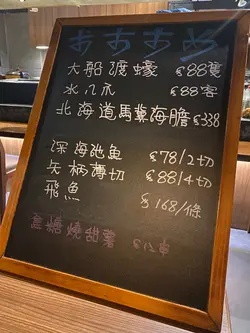 おすすめ
大船渡蠔 $88隻
水八爪 $88客
北海道馬糞海膽 $338
深海池魚 $78/2切
矢柄薄切 $88/4切
飛魚 $168/條
蔗糖燒甜薯